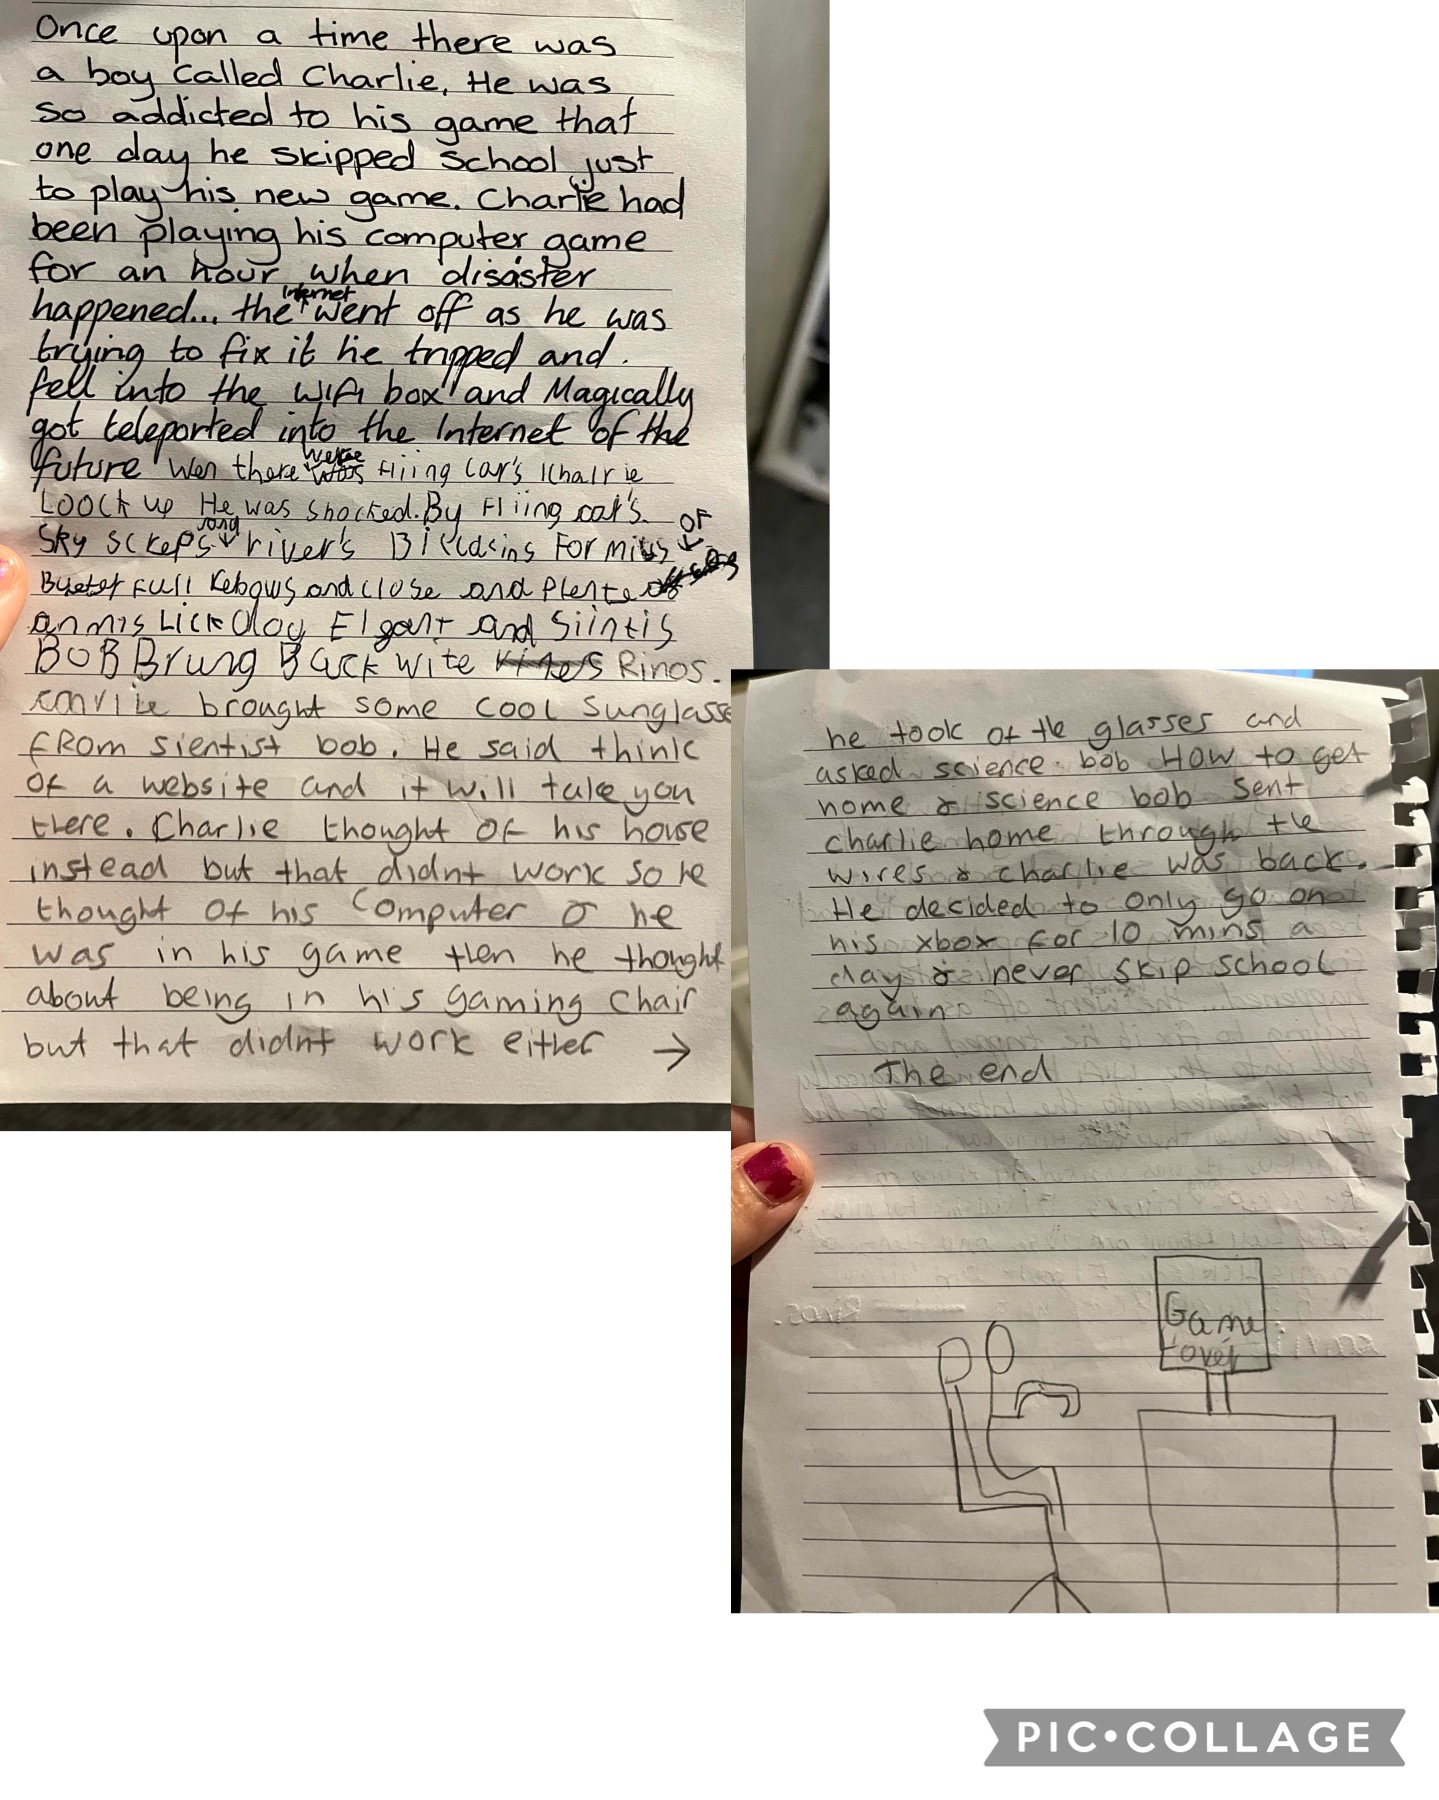 Once upon a time there was
a boy called Charlie. He was
so addicted to his game that
one day he skipped school just
to play his new game. Charlie had
been playing his computer game
for an hour when disaster
happened... the internet went off as he was
trying to fix it he tripped and
fell into the wifi box and Magically
got teleported into the Internet of the
future Wen there were Fliing Car's
Loock up He was shocked. By Fliing car's.
Sky sckeps long river's For miles OF
Full and close and Plente
Lick Elgant and Siintis
BOB Brung Back wite Rinos.
brought some cool Sunglasse
from sientist bob. He said think
of a website and it will take you
there. Charlie thought of his house
instead but that didnt work so he
thought of his Computer & he
was in his game then he thought
about being in his gaming Chair
but that didnt work either →
he took of the glasses and
asked science bob How to get
home & science bob sent
charlie home through the
wires & charlie was back.
He decided to only go on
his xbox for 10 mins a
day & never skip school
again
The end
Game
over
PIC•COLLAGE